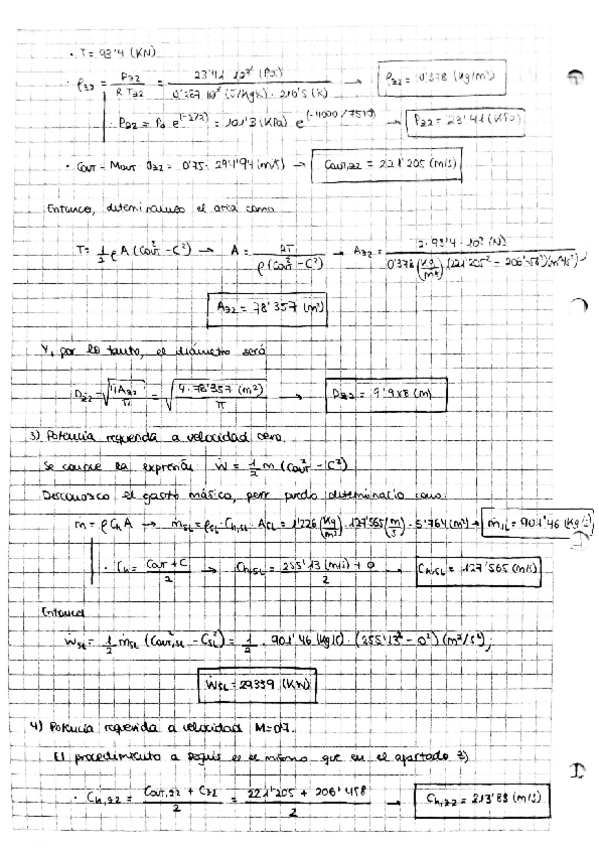 · T = 93'4 (KN)
· ρ22 = P22 / (R T22) = 23'41 · 10³ (Pa) / (0'287 · 10³ (J/KgK) · 216'5 (K)) → ρ22 = 0'378 (kg/m³)
· P22 = P0 e^(-z/z) = 101'3 (KPa) e^(-11000/7519) → P22 = 23'41 (KPa)
· Cout = Mout a22 = 0'75 · 294'94 (m/s) → Cout,22 = 221'205 (m/s)
Entonces, determinamos el area como
T = 1/2 ρ A (Cout² - C²) → A = 2T / (ρ (Cout² - C²)) → A22 = 2 · 93'4 · 10³ (N) / (0'378 (kg/m³) (221'205² - 206'458²)(m²/s²))
A22 = 78'357 (m²)
Y, por lo tanto, el diámetro será
D22 = √(4A22/π) = √(4 · 78'357 (m²) / π) → D22 = 9'988 (m)
3) Potencia requerida a velocidad cero.
Se conoce la expresión Ẇ = 1/2 ṁ (Cout² - C²)
Desconozco el gasto másico, pero puedo determinarlo como:
ṁ = ρ Ch A → ṁSL = ρSL · Ch,SL · ASL = 1'226 (kg/m³) · 127'565 (m/s) · 5'764 (m²) → ṁSL = 901'46 (kg/s)
· Ch = (Cout + C) / 2 → Ch,SL = (255'13 (m/s) + 0) / 2 → Ch,SL = 127'565 (m/s)
Entonces
ẆSL = 1/2 ṁSL (Cout,SL² - CSL²) = 1/2 · 901'46 (kg/s) · (255'13² - 0²) (m²/s²);
ẆSL = 29339 (KW)
4) Potencia requerida a velocidad M=0'7.
El procedimiento a seguir es el mismo que en el apartado 3)
· Ch,22 = (Cout,22 + C22) / 2 = (221'205 + 206'458) / 2 → Ch,22 = 213'83 (m/s)